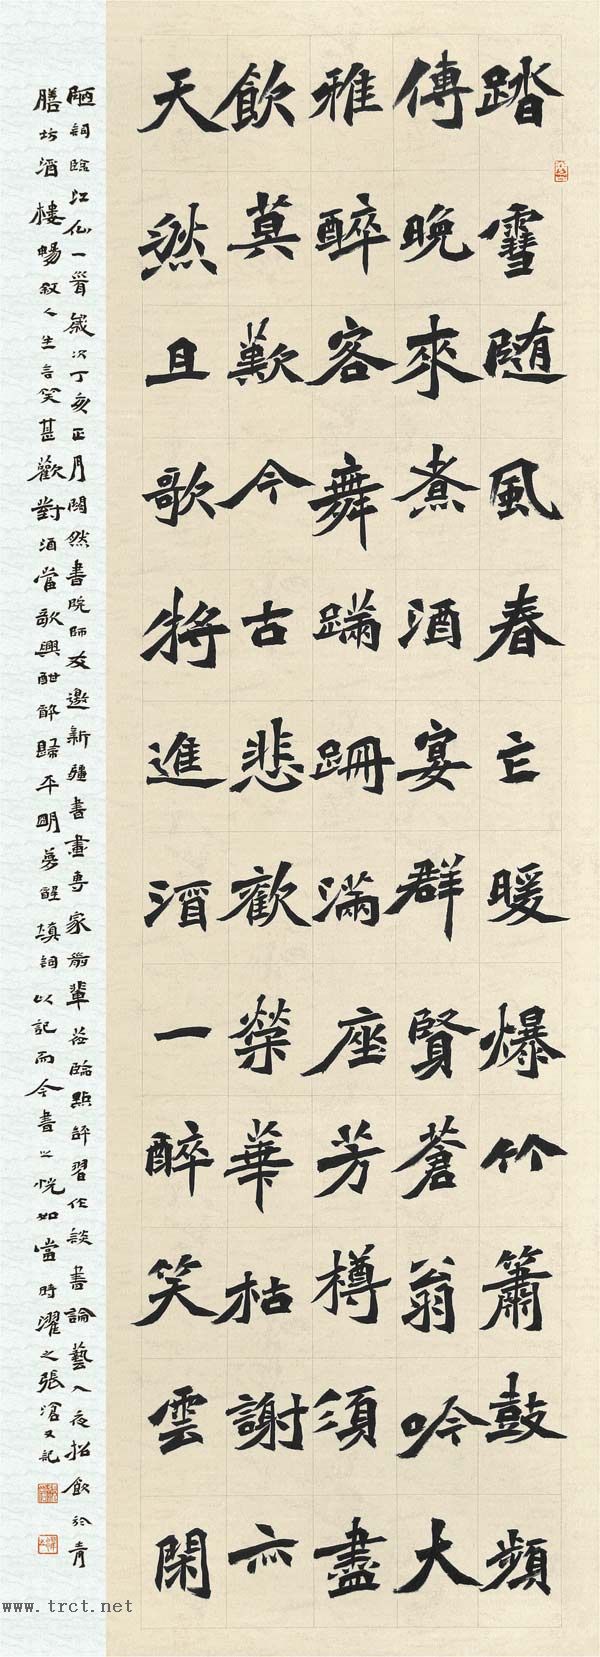 踏雪随風春已暖爆竹簫鼓頻
傳晚來煮酒宴群賢蒼翁吟大
雅醉客舞蹣跚滿座芳樽須盡
飲莫歎今古悲歡榮華枯謝亦
天然且歌將進酒一醉笑雲閑
陋詞臨江仙一首歲次丁亥正月闊然書院師友邀新疆書畫專家前輩蒞臨點評習作談書論藝入夜招飲於青
膳坊酒樓暢叙人生言笑甚歡對酒當歌興酣醉歸平明夢醒填詞以記而今書之恍如當時濯之張滄又記
www.trct.net